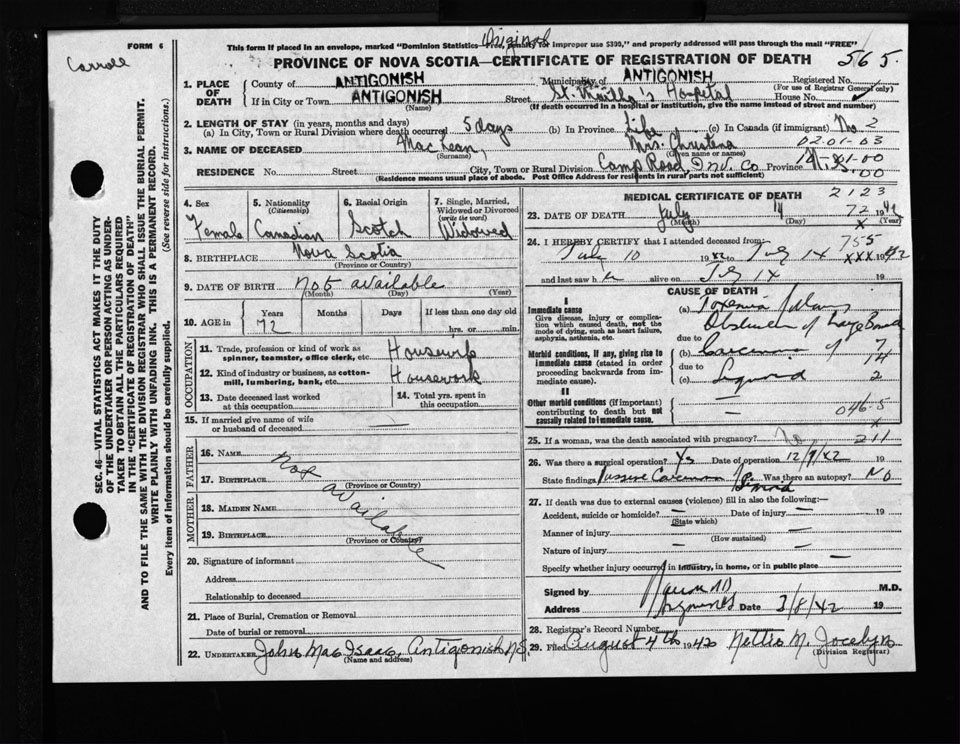 FORM 6
Carroll
Original
This form if placed in an envelope, marked "Dominion Statistics—Free, penalty for improper use $300," and properly addressed will pass through the mail "FREE"
PROVINCE OF NOVA SCOTIA—CERTIFICATE OF REGISTRATION OF DEATH
565
SEC. 46—VITAL STATISTICS ACT MAKES IT THE DUTY
OF THE UNDERTAKER OR PERSON ACTING AS UNDER-
TAKER TO OBTAIN ALL THE PARTICULARS REQUIRED
IN THE "CERTIFICATE OF REGISTRATION OF DEATH"
AND TO FILE THE SAME WITH THE DIVISION REGISTRAR WHO SHALL ISSUE THE BURIAL PERMIT.
WRITE PLAINLY WITH UNFADING INK. THIS IS A PERMANENT RECORD.
Every item of information should be carefully supplied. (See reverse side for instructions.)
1. PLACE OF DEATH
County of ANTIGONISH Municipality of ANTIGONISH Registered No.
(For use of Registrar General only)
If in City or Town ANTIGONISH Street St. Martha's Hospital House No.
(Name) (If death occurred in a hospital or institution, give the name instead of street and number)
2. LENGTH OF STAY (in years, months and days)
(a) In City, Town or Rural Division where death occurred 5 days (b) In Province Life (c) In Canada (if immigrant) No 2
02-01-03
3. NAME OF DECEASED MacLean, Mrs. Christena
(Surname) (Given name or names)
RESIDENCE No. Street City, Town or Rural Division Camp Road, Inv. Co. Province N.S.
(Residence means usual place of abode. Post Office Address for residents in rural parts not sufficient)
4. Sex Female
5. Nationality (Citizenship) Canadian
6. Racial Origin Scotch
7. Single, Married, Widowed or Divorced (write the word) Widowed
8. BIRTHPLACE Nova Scotia
(Province or Country)
9. DATE OF BIRTH Not available
(Month) (Day) (Year)
10. AGE in Years Months Days If less than one day old
72 hrs. or min.
OCCUPATION
11. Trade, profession or kind of work as spinner, teamster, office clerk, etc. Housewife
12. Kind of industry or business, as cotton-mill, lumbering, bank, etc. Housework
13. Date deceased last worked at this occupation —
14. Total yrs. spent in this occupation
15. If married give name of wife or husband of deceased —
FATHER
16. NAME
17. BIRTHPLACE
(Province or Country)
MOTHER
18. MAIDEN NAME
19. BIRTHPLACE
(Province or Country)
Not available
20. Signature of informant
Address
Relationship to deceased
21. Place of Burial, Cremation or Removal
Date of burial or removal
22. UNDERTAKER John MacIsaac, Antigonish N.S.
(Name and address)
MEDICAL CERTIFICATE OF DEATH
2123
23. DATE OF DEATH July 14 72 1942
(Month) (Day) (Year)
x
24. I HEREBY CERTIFY that I attended deceased from:—
755
July 10 1942 to July 14 XXX 1942
and last saw h alive on July 14
CAUSE OF DEATH
I
Immediate cause
Give disease, injury or complication which caused death, not the mode of dying, such as heart failure, asphyxia, asthenia, etc.
(a) Toxemia
Obstruction of Large Bowel
due to
Morbid conditions, if any, giving rise to immediate cause (stated in order proceeding backwards from immediate cause).
(b) Carcinoma of 7
due to 14
(c) Sigmoid 2
II
Other morbid conditions (if important) contributing to death but not causally related to immediate cause.
046-5
x
25. If a woman, was the death associated with pregnancy? No 211
26. Was there a surgical operation? Yes Date of operation 12/7/42
State findings Massive Carcinoma Sigmoid Was there an autopsy? NO
27. If death was due to external causes (violence) fill in also the following:—
Accident, suicide or homicide? — Date of injury — 19
(State which)
Manner of injury —
(How sustained)
Nature of injury —
Specify whether injury occurred in industry, in home, or in public place
Signed by M.D.
Address Antigonish Date 3/8/42 19
28. Registrar's Record Number
29. Filed August 4th 1942 Nettie M. Jocelyn
(Division Registrar)